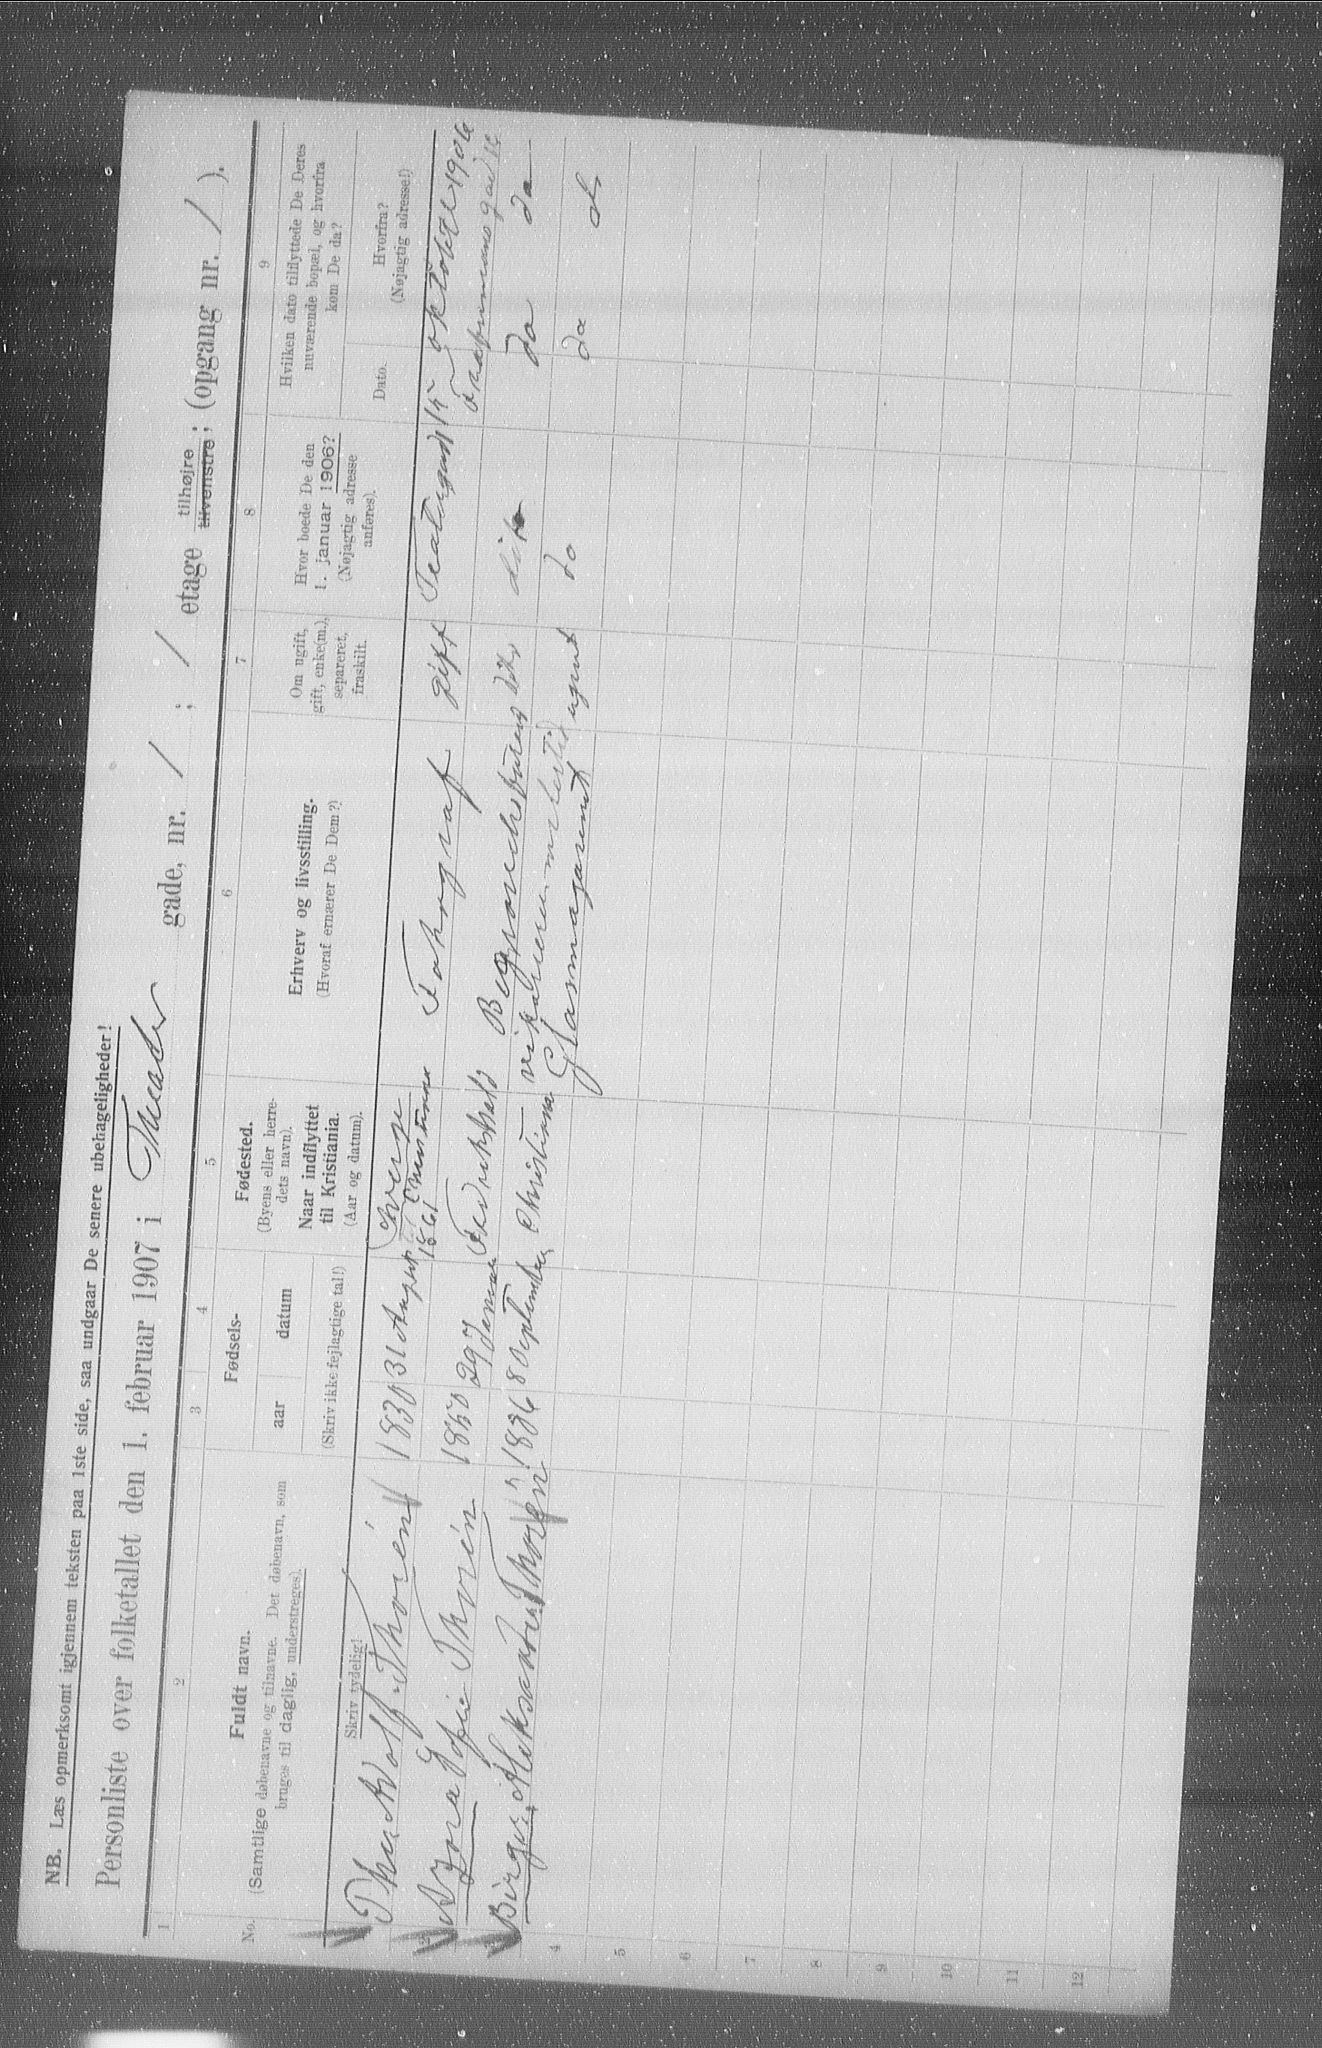 NB. Læs opmerksomt igjennem teksten paa 1ste side, saa undgaar De senere ubehageligheder!
Personliste over folketallet den 1. februar 1907 i Theater gade, nr. / ; / etage tilhøjre tilvenstre ; (opgang nr. / ).
1 2 3 4 5 6 7 8 9
No.
Fuldt navn.
(Samtlige døbenavne og tilnavne. Det døbenavn, som
bruges til daglig, understreges).
Skriv tydelig!
Fødsels-
aar
datum
(Skriv ikke fejlagtige tal!)
Fødested.
(Byens eller herre-
dets navn).
Naar indflyttet
til Kristiania.
(Aar og datum).
Erhverv og livsstilling.
(Hvoraf ernærer De Dem?)
Om ugift,
gift, enke(m.),
separeret,
fraskilt.
Hvor boede De den
1. januar 1906?
(Nøjagtig adresse
anføres).
Hvilken dato tilflyttede De Deres
nuværende bopæl, og hvorfra
kom De da?
Dato.
Hvorfra?
(Nøjagtig adresse!)
Thorén 1830 31 August Sverge 1861 Christiania Fotograf gift 15 oktober 1906
2 Sofie Thorén 1850 29 Fredrikshald dito dito do do
3 Birger Aleksander Thorén 1886 8 September Christiania ugift do do do
4
5
6
7
8
9
10
11
12